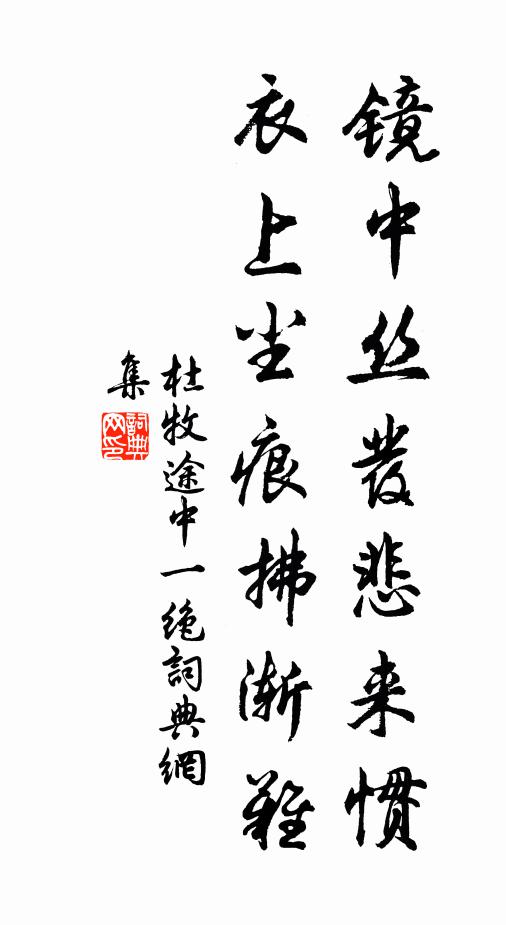 镜中丝發悲来惯
衣上尘痕拂渐難
杜牧途中一绝詞典網
集
詞典网印